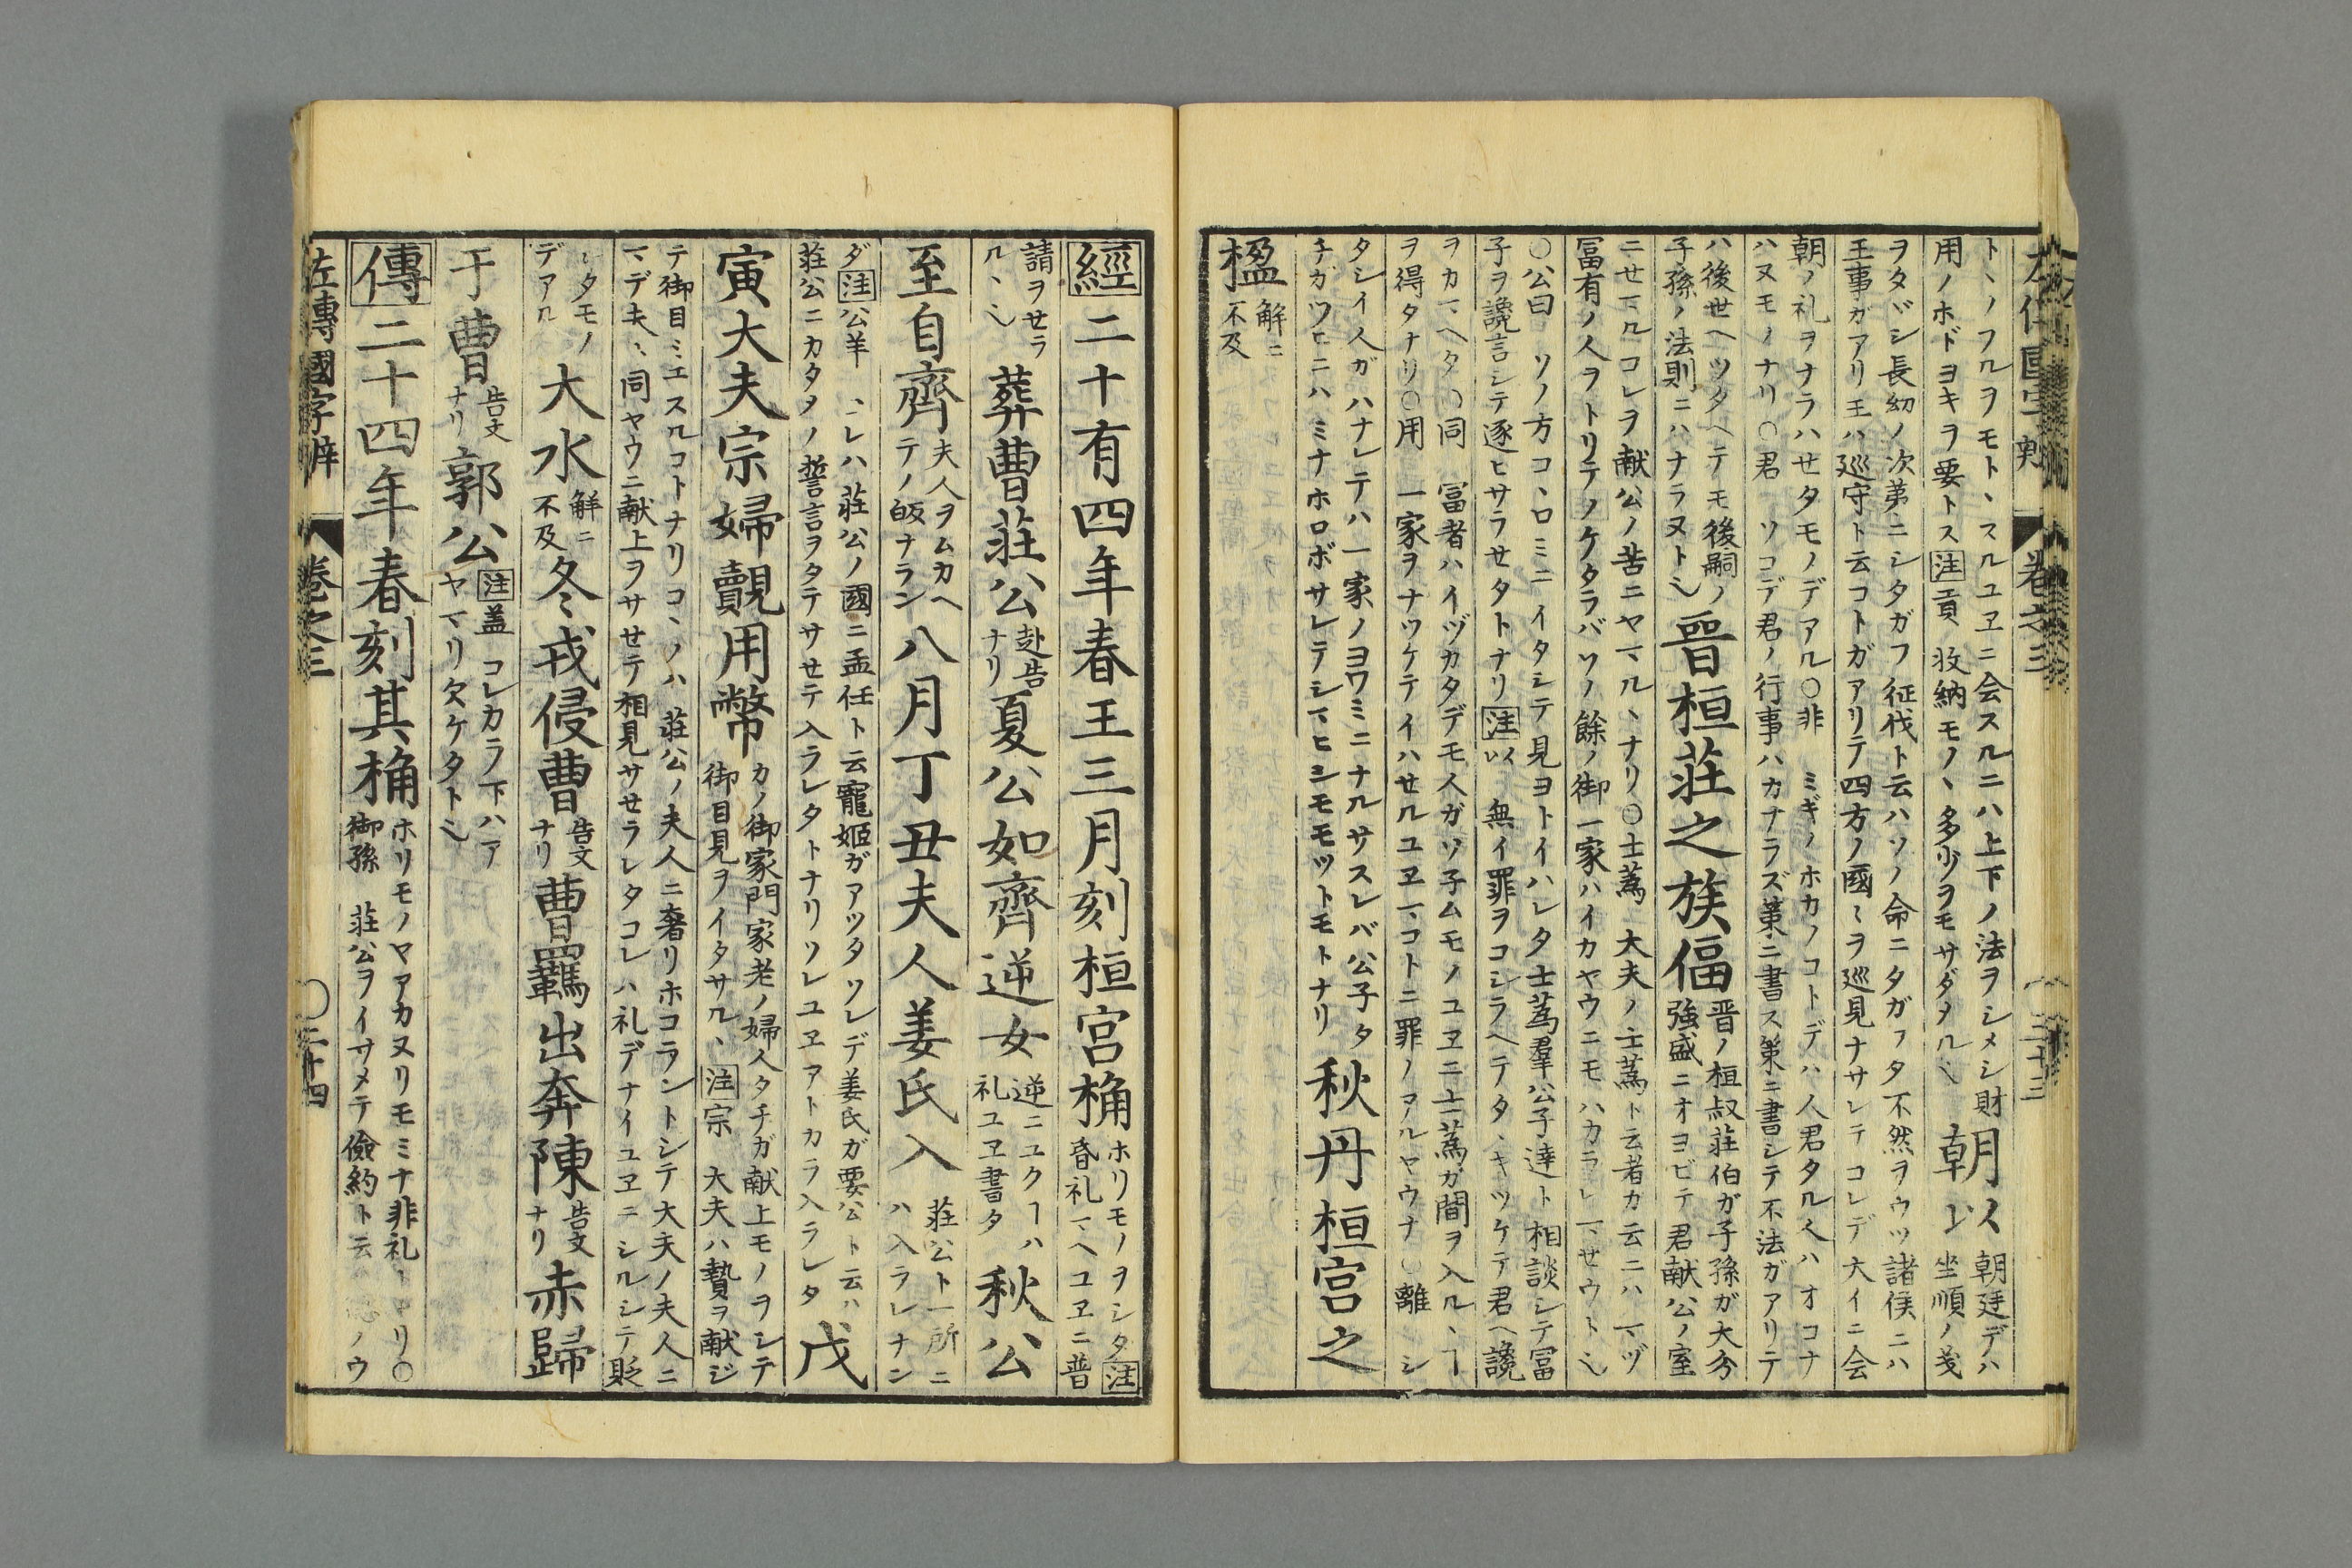 卷之三
トヽノフルヲモトヽスルユヱニ会スルニハ上下ノ法ヲシメシ財
用ノホドヨキヲ要トス注貢 收納モノヽ多少ヲモサダメル
朝以
朝廷デハ
坐順ノ
ヲタヾシ長幼ノ次第ニシタガフ 征伐ト云ハソノ命ニタガフタ不然ヲウツ諸侯ニハ
王事ガアリ王ハ巡守ト云コトガアリテ四方ノ國〻ヲ巡見ナサレテコレデ大イニ会
朝ノ礼ヲナラハセタモノデアル○非 ミギノホカノコトデハ人君タル人ハオコナ
ハヌモノナリ○君 ソコデ君ノ行事ハカナラズ策ニ書ス策ニ書シテ不法ガアリテ
ハ後世ヘツタヘテモ後嗣ノ
子孫ノ法則ニハナラヌト
晉桓莊之族偪
晋ノ桓叔荘伯ガ子孫ガ大分
強盛ニオヨビテ君献公ノ室
ニセマルコレヲ献公ノ苦ニヤマルヽナリ○士蒍 大夫ノ士蒍ト云者カ云ニハマヅ
冨有ノ人ヲトリテノケタラバソノ餘ノ御一家ハイカヤウニモハカラレマセウト
○公曰 ソノ方コヽロミニイタシテ見ヨトイハレタ士蒍羣公子達ト相談シテ冨
子ヲ讒言シテ逐ヒサラセタトナリ注以 無イ罪ヲコシラヘテタヽキツケテ君ヘ讒
ヲカマヘタ○同 冨者ハイヅカタデモ人ガソ子ムモノユヱニ士蒍ガ間ヲ入ルヽ
ヲ得タナリ○用 一家ヲナツケテイハセルユヱマコトニ罪ノアルヤウナ○離 シ
タシイ人ガハナレテハ一家ノヨワミニナルサスレバ公子タ
チガツヒニハミナホロボサレテシマヒシモモツトモトナリ
秋丹桓宮之
楹
解ニ
不及
經二十有四年春王三月刻桓宮桷
ホリモノヲシタ注
昏礼マヘユヱニ普
請ヲセラ
ルヽ
葬曹莊公
赴告
ナリ
夏公如齊逆女
逆ニユクハ
礼ユヱ書タ
秋公
至自齊
夫人ヲムカヘ
テノ皈ナラン
八月丁丑夫人姜氏入
荘公ト一所ニ
ハ入ラレナン
ダ注公羊 コレハ荘公ノ國ニ孟任ト云寵姬ガアツタソレデ姜氏ガ要公ト云ハ
荘公ニカタメノ誓言ヲタテサセテ入ラレタトナリソレユヱアトカラ入ラレタ
戊
寅大夫宗婦覿用幣
カノ御家門家老ノ婦人タチガ献上モノヲシテ
御目見ヲイタサルヽ注宗 大夫ハ贄ヲ献ジ
テ御目ミエスルコトナリコヽノハ荘公ノ夫人ニ奢リホコラントシテ大夫ノ夫人ニ
マデ夫ヽ同ヤウニ献上ヲサセテ相見サセラレタコレハ礼デナイユヱニシルシテ貶
シタモノ
デアル
大水
解ニ
不及
冬戎侵曹
告文
ナリ
曹羈出奔陳
告文
ナリ
赤歸
于曹
告文
ナリ
郭公
注盖 コレカラ下ハア
ヤマリ欠ケタト
傳二十四年春刻其桷
ホリモノマアカヌリモミナ非礼トナリ○
御孫 荘公ヲイサメテ儉約ト云 ノウ
左傳國字辯
卷之三
○二十四